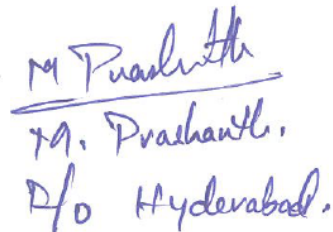 M Prashanth
M. Prashanth.
R/o Hyderabad.